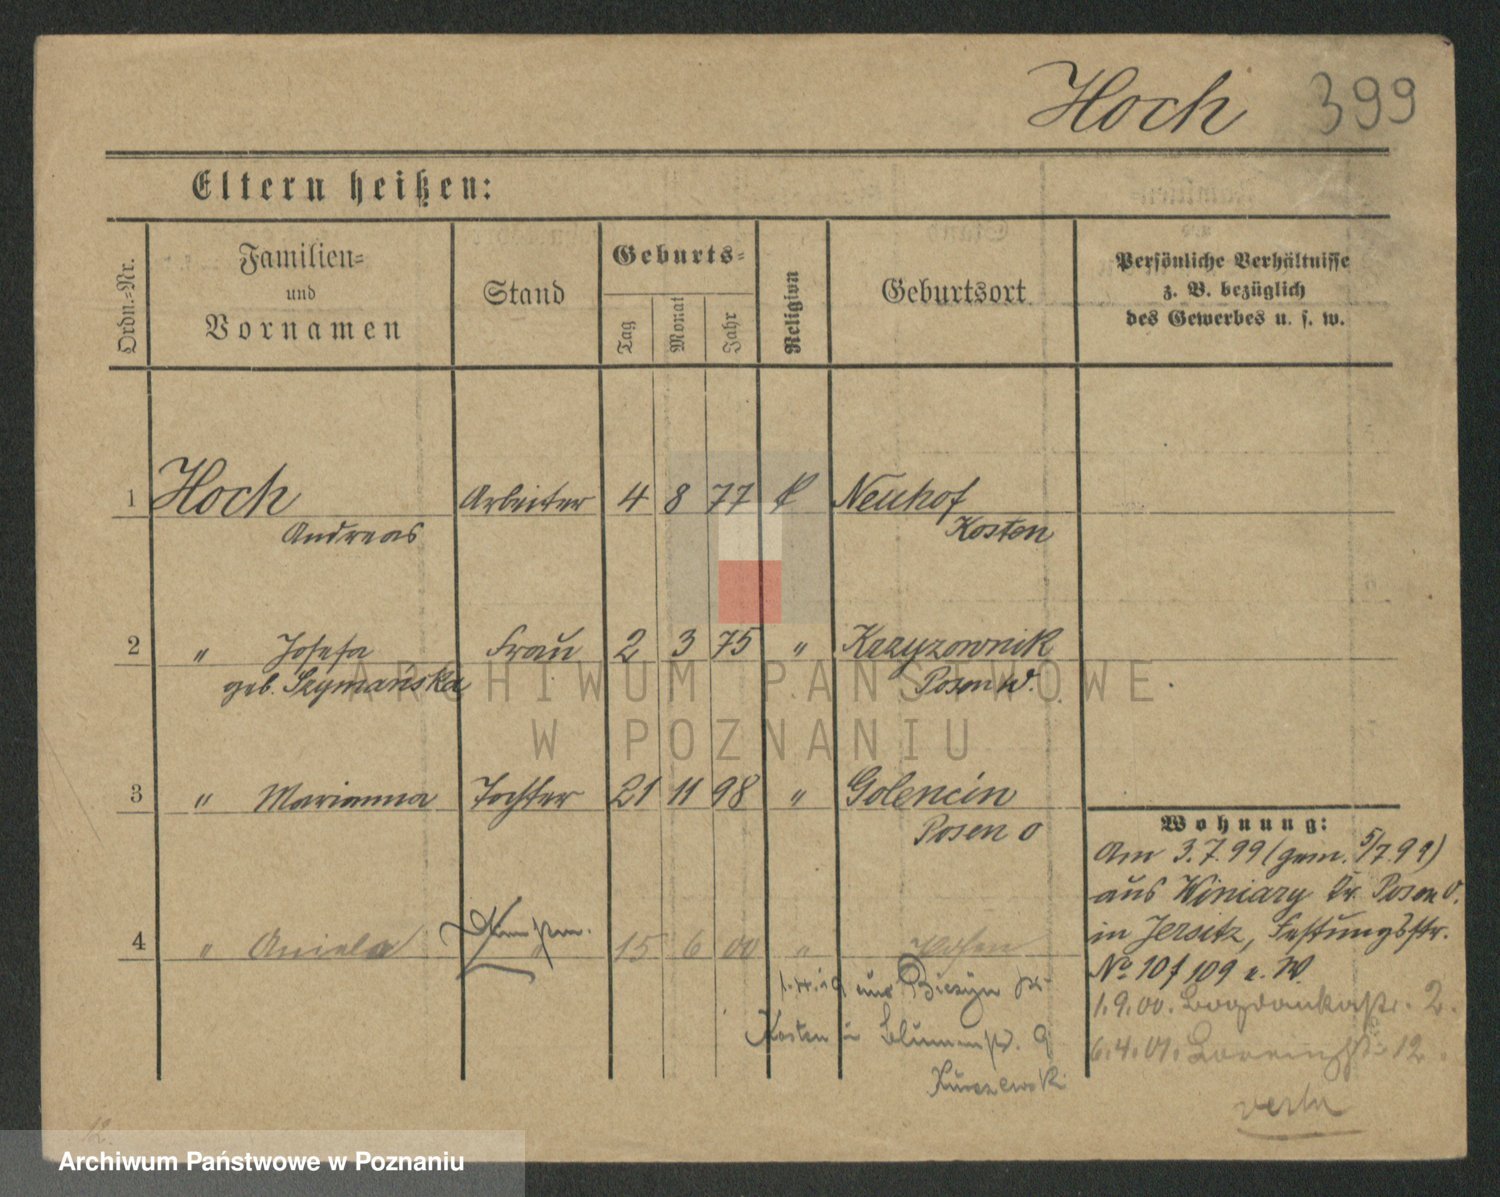 Hoch 399
Eltern heißen:
Ordn.-Nr.
Familien-
und
Vornamen
Stand
Geburts-
Tag
Monat
Jahr
Religion
Geburtsort
Persönliche Verhältnisse
z. B. bezüglich
des Gewerbes u. s. w.
1 Hoch Arbeiter 4 8 77 k Neuhof
Andreas Kosten
2 " Josefa Frau 2 3 75 " Krzyzownik
geb. Szymańska Posen W.
3 " Marianna Tochter 21 11 98 " Golencin
Posen O
4 " Aniela " 15 6 00 " Posen
aus
Kosten in Blumenstr. 9
Kurczewski
Wohnung:
Am 3.7.99 (gem. 5/7 99)
aus Winiary Kr. Posen O.
in Jersitz, Festungsstr.
No 107/109
1.9.00. Bogdankastr. 2.
6.4.01. 12.
ARCHIWUM PAŃSTWOWE
W POZNANIU
12.
Archiwum Państwowe w Poznaniu